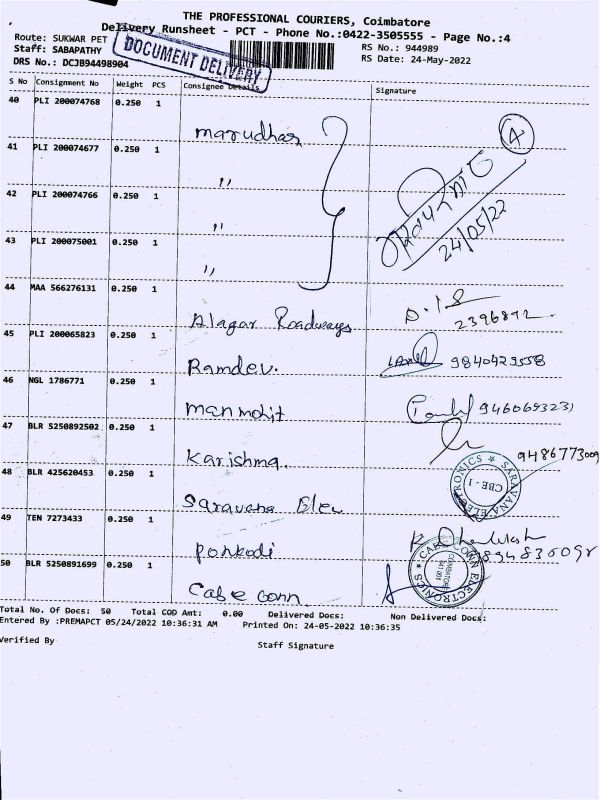 THE PROFESSIONAL COURIERS, Coimbatore
Delivery Runsheet - PCT - Phone No.:0422-3505555 - Page No.:4
Route: SUKWAR PET
RS No.: 944989
Staff: SABAPATHY
RS Date: 24-May-2022
DRS No.: DCJB94498904
DOCUMENT DELIVERY
S No Consignment No Weight PCS Consignee Details Signature
40 PLI 200074768 0.250 1
marudhar
4
41 PLI 200074677 0.250 1
"
42 PLI 200074766 0.250 1
"
24/05/22
43 PLI 200075001 0.250 1
"
44 MAA 566276131 0.250 1
Alagar Roadways
45 PLI 200065823 0.250 1
Ramdev.
9840429558
46 NGL 1786771 0.250 1
man mohit
47 BLR 5250892502 0.250 1
Karishma.
9486773009
48 BLR 425620453 0.250 1
Saravana Elec
SARAVANA ELECTRONICS
CBE - 1
49 TEN 7273433 0.250 1
Ponkodi
50 BLR 5250891699 0.250 1
Cabe Conn
CABE CONN ELECTRONICS
COIMBATORE
641 001
Total No. Of Docs: 50 Total COD Amt: 0.00 Delivered Docs: Non Delivered Docs:
Entered By :PREMAPCT 05/24/2022 10:36:31 AM Printed On: 24-05-2022 10:36:35
Verified By
Staff Signature